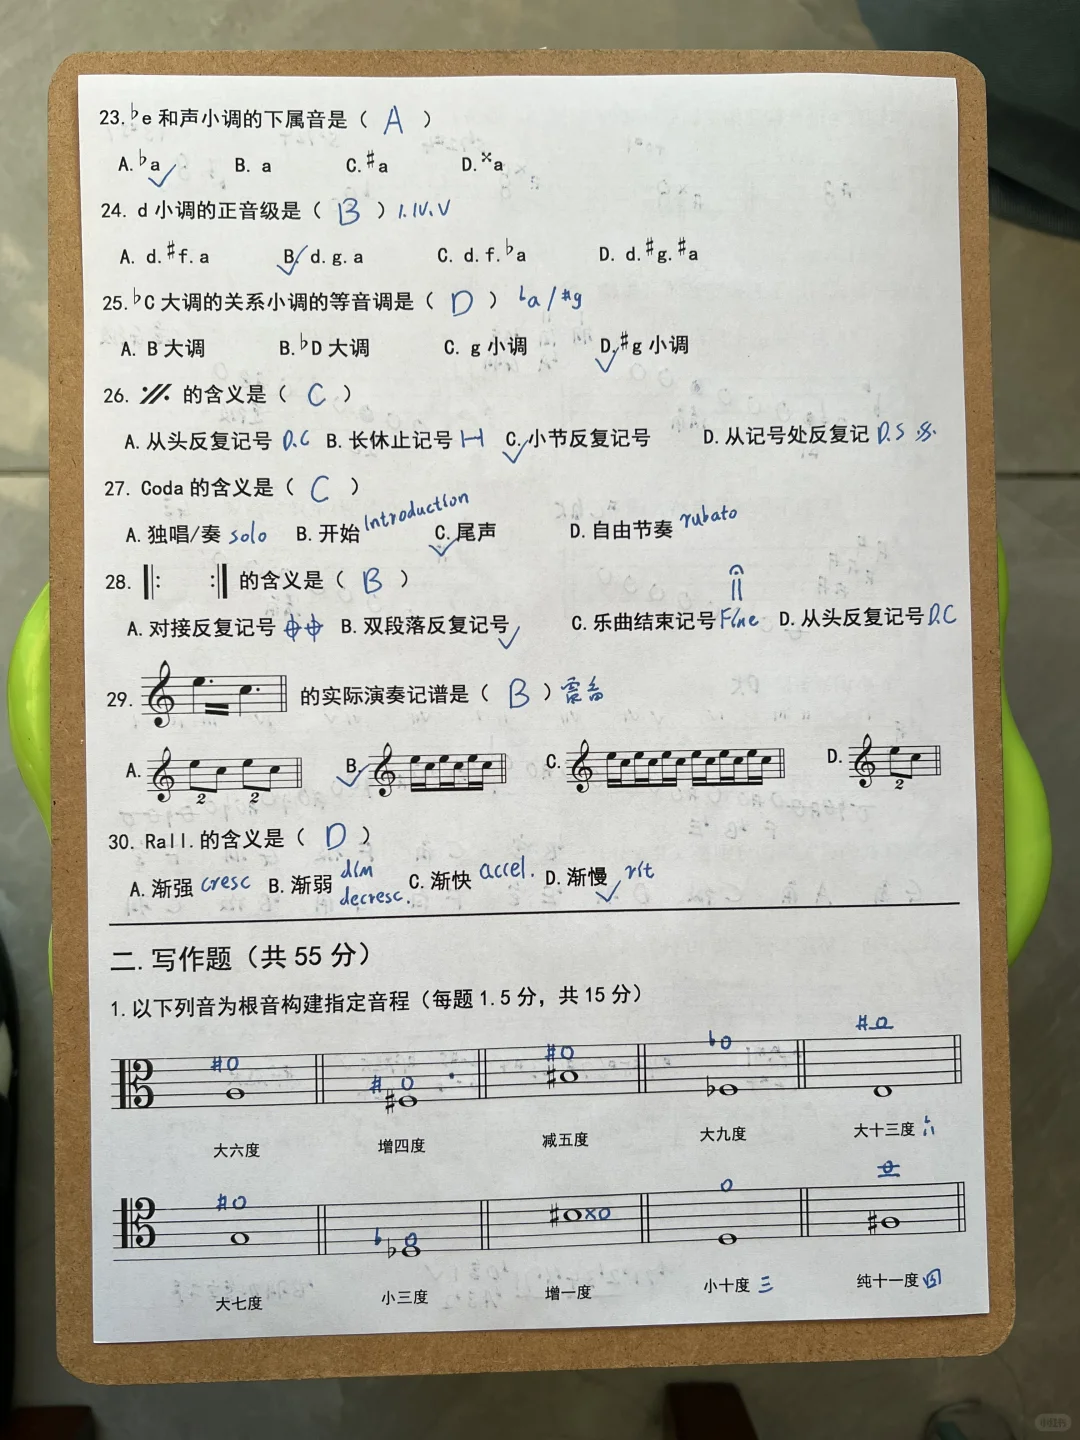 23.♭e 和声小调的下属音是（ A ）
A.♭a B. a C.♯a D.×a
24. d 小调的正音级是（ B ）I.IV.V
A. d.♯f.a B. d.g.a C. d.f.♭a D. d.♯g.♯a
25.♭C 大调的关系小调的等音调是（ D ）♭a/♯g
A. B 大调 B.♭D 大调 C. g 小调 D.♯g 小调
26. 的含义是（ C ）
A. 从头反复记号 D.C B. 长休止记号 C. 小节反复记号 D. 从记号处反复记 D.S
27. Coda 的含义是（ C ）
A. 独唱/奏 solo B. 开始 Introduction C. 尾声 D. 自由节奏 rubato
28. 的含义是（ B ）
A. 对接反复记号 B. 双段落反复记号 C. 乐曲结束记号 Fine D. 从头反复记号 D.C
29. 的实际演奏记谱是（ B ）震音
A. 2 2 B. C. D. 2
30. Rall.的含义是（ D ）
A. 渐强 cresc B. 渐弱 dim decresc. C. 渐快 accel. D. 渐慢 rit
二.写作题（共 55 分）
1.以下列音为根音构建指定音程（每题 1.5 分，共 15 分）
大六度 增四度 减五度 大九度 大十三度 六
大七度 小三度 增一度 小十度 三 纯十一度 四
小红书